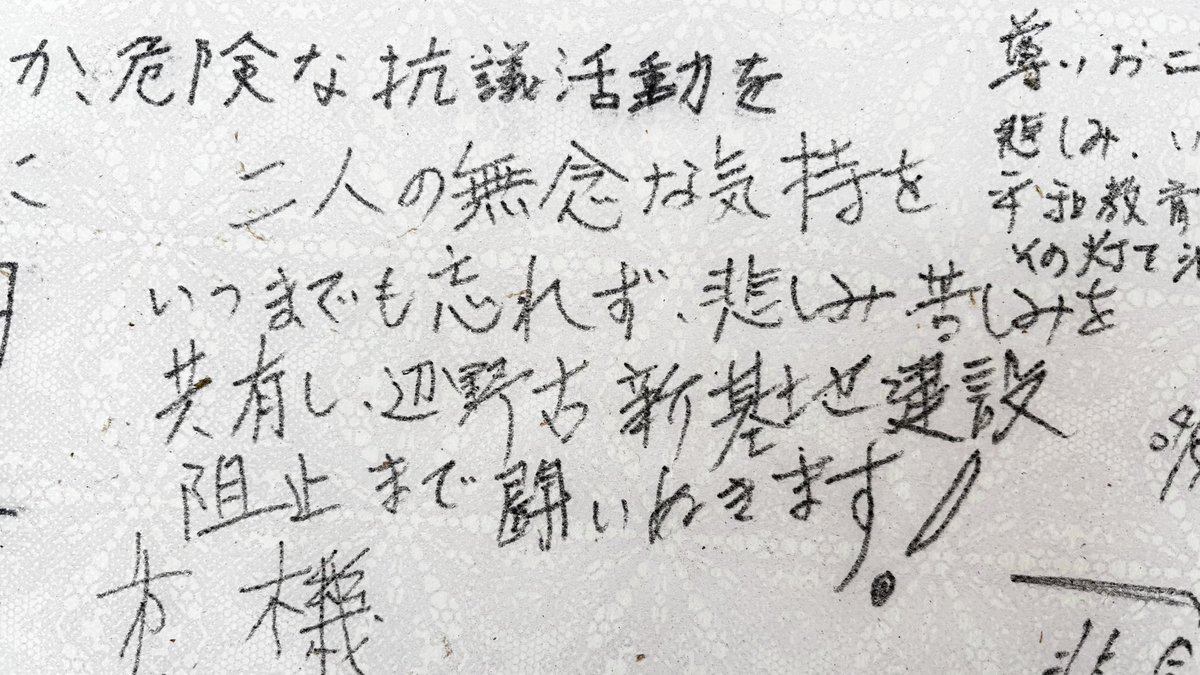 か、危険な抗議活動を
二人の無念な気持を
いつまでも忘れず、悲しみ苦しみを
共有し、辺野古新基地建設
阻止まで闘いぬきます!
機
尊いお二
悲しみ、い
平和教育
その灯て